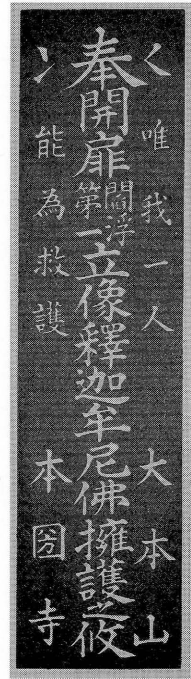 唯我一人　大本山
奉開扉閻浮第一立像釋迦牟尼佛擁護之攸
能為救護　本圀寺